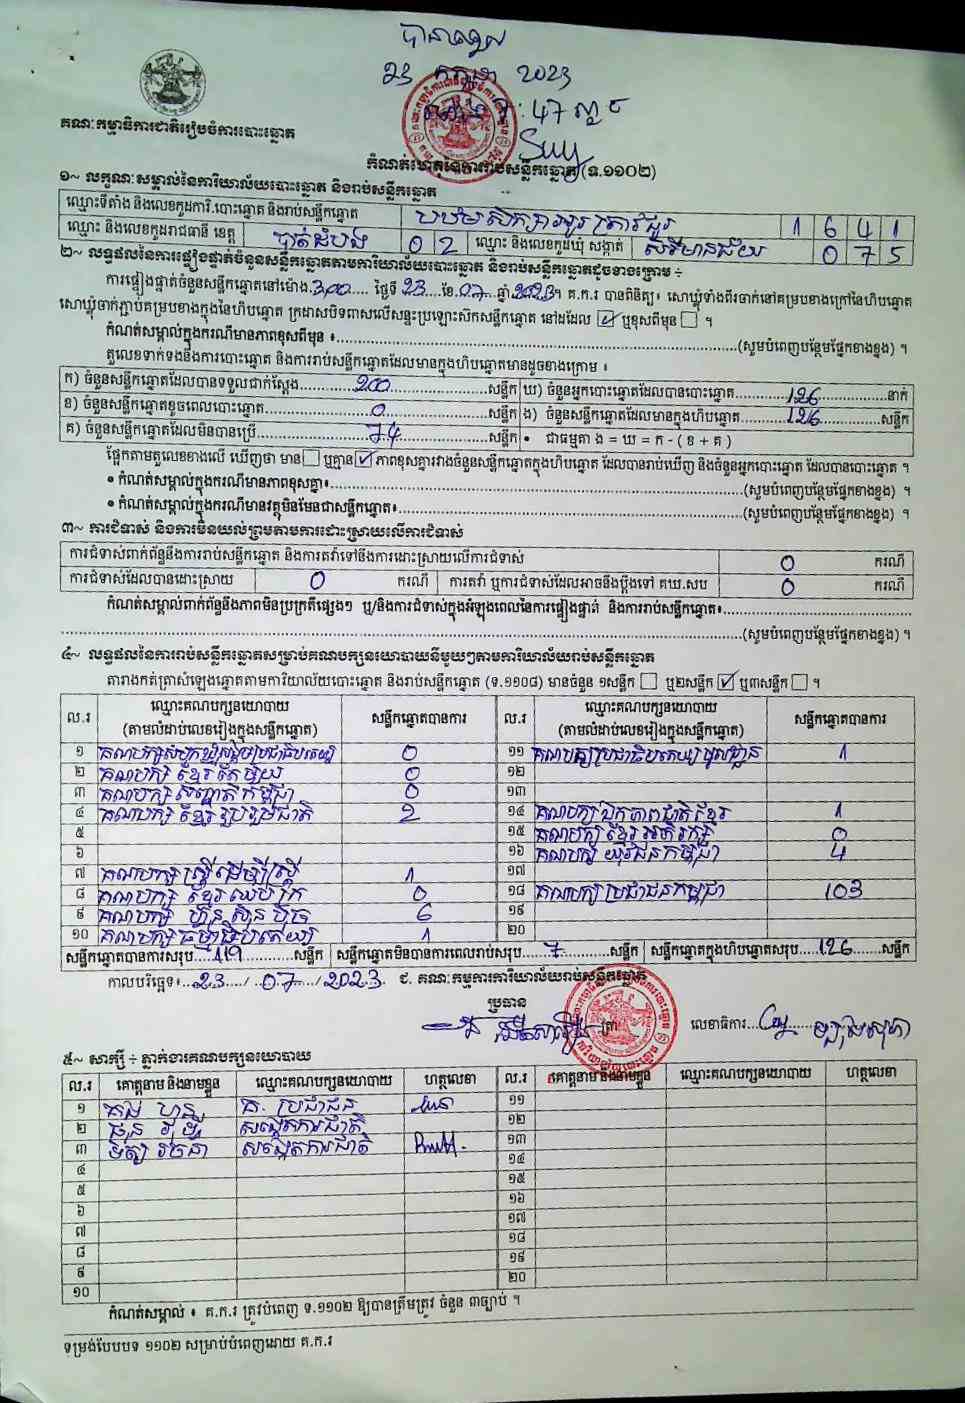 បានឃើញ
23 កក្កដា 2023
ម៉ោង : 47 នាទី
គណៈកម្មាធិការជាតិរៀបចំការបោះឆ្នោត
កំណត់ហេតុនៃការរាប់សន្លឹកឆ្នោត (ទ.១១០២)
១~ លក្ខណៈសម្គាល់នៃការិយាល័យបោះឆ្នោត និងរាប់សន្លឹកឆ្នោត
ឈ្មោះទីតាំង និងលេខកូដការិ.បោះឆ្នោត និងរាប់សន្លឹកឆ្នោត បឋមសិក្សាអូរត្រាវជួរ 1 6 4 1
ឈ្មោះ និងលេខកូដរាជធានី ខេត្ត បាត់ដំបង 0 2 ឈ្មោះ និងលេខកូដឃុំ សង្កាត់ សិរីមានជ័យ 0 7 5
២~ លទ្ធផលនៃការផ្ទៀងផ្ទាត់ចំនួនសន្លឹកឆ្នោតតាមការិយាល័យបោះឆ្នោត និងរាប់សន្លឹកឆ្នោតដូចខាងក្រោម ÷
ការផ្ទៀងផ្ទាត់ចំនួនសន្លឹកឆ្នោតនៅម៉ោង 3:00 ថ្ងៃទី 23 ខែ 07 ឆ្នាំ 2023។ គ.ក.រ បានពិនិត្យ៖ សោឃ្លុំទាំងពីរចាក់នៅគម្របខាងក្រៅនៃហិបឆ្នោត
សោឃ្លុំចាក់ភ្ជាប់គម្របខាងក្នុងនៃហិបឆ្នោត ក្រដាសបិទពាសលើសន្ទះប្រឡោះស៊កសន្លឹកឆ្នោត នៅដដែល ☑ ឬខុសពីមុន ☐ ។
កំណត់សម្គាល់ក្នុងករណីមានភាពខុសពីមុន ៖ (សូមបំពេញបន្ថែមផ្នែកខាងខ្នង) ។
តួលេខទាក់ទងនឹងការបោះឆ្នោត និងការរាប់សន្លឹកឆ្នោតដែលមានក្នុងហិបឆ្នោតមានដូចខាងក្រោម ៖
ក) ចំនួនសន្លឹកឆ្នោតដែលបានទទួលជាក់ស្តែង 200 សន្លឹក ឃ) ចំនួនអ្នកបោះឆ្នោតដែលបានបោះឆ្នោត 126 នាក់
ខ) ចំនួនសន្លឹកឆ្នោតខូចពេលបោះឆ្នោត 0 សន្លឹក ង) ចំនួនសន្លឹកឆ្នោតដែលមានក្នុងហិបឆ្នោត 126 សន្លឹក
គ) ចំនួនសន្លឹកឆ្នោតដែលមិនបានប្រើ 74 សន្លឹក • ជាធម្មតា ង = ឃ = ក - ( ខ + គ )
ផ្អែកតាមតួលេខខាងលើ ឃើញថា មាន ☐ ឬគ្មាន ☑ ភាពខុសគ្នារវាងចំនួនសន្លឹកឆ្នោតក្នុងហិបឆ្នោត ដែលបានរាប់ឃើញ និងចំនួនអ្នកបោះឆ្នោត ដែលបានបោះឆ្នោត ។
• កំណត់សម្គាល់ក្នុងករណីមានភាពខុសគ្នា៖ (សូមបំពេញបន្ថែមផ្នែកខាងខ្នង) ។
• កំណត់សម្គាល់ក្នុងករណីមានវត្ថុមិនមែនជាសន្លឹកឆ្នោត៖ (សូមបំពេញបន្ថែមផ្នែកខាងខ្នង) ។
៣~ ការជំទាស់ និងការមិនយល់ព្រមតាមការដោះស្រាយលើការជំទាស់
ការជំទាស់ពាក់ព័ន្ធនឹងការរាប់សន្លឹកឆ្នោត និងការតវ៉ាទៅនឹងការដោះស្រាយលើការជំទាស់ 0 ករណី
ការជំទាស់ដែលបានដោះស្រាយ 0 ករណី ការតវ៉ា ឬការជំទាស់ដែលអាចនឹងប្តឹងទៅ គឃ.សប 0 ករណី
កំណត់សម្គាល់ពាក់ព័ន្ធនឹងភាពមិនប្រក្រតីផ្សេងៗ ឬ/និងការជំទាស់ក្នុងអំឡុងពេលនៃការផ្ទៀងផ្ទាត់ និងការរាប់សន្លឹកឆ្នោត៖
(សូមបំពេញបន្ថែមផ្នែកខាងខ្នង) ។
៤~ លទ្ធផលនៃការរាប់សន្លឹកឆ្នោតសម្រាប់គណបក្សនយោបាយនីមួយៗតាមការិយាល័យរាប់សន្លឹកឆ្នោត
តារាងកត់ត្រាសំឡេងឆ្នោតតាមការិយាល័យបោះឆ្នោត និងរាប់សន្លឹកឆ្នោត (ទ.១១០៨) មានចំនួន ១សន្លឹក ☐ ឬ២សន្លឹក ☑ ឬ៣សន្លឹក ☐ ។
ល.រ ឈ្មោះគណបក្សនយោបាយ (តាមលំដាប់លេខរៀងក្នុងសន្លឹកឆ្នោត) សន្លឹកឆ្នោតបានការ ល.រ ឈ្មោះគណបក្សនយោបាយ (តាមលំដាប់លេខរៀងក្នុងសន្លឹកឆ្នោត) សន្លឹកឆ្នោតបានការ
១ គណបក្សសំបុកឃ្មុំសង្គមប្រជាធិបតេយ្យ 0 ១១ គណបក្សប្រជាធិបតេយ្យមូលដ្ឋាន 1
២ គណបក្ស ខ្មែរតែមួយ 0 ១២
៣ គណបក្ស សញ្ជាតិកម្ពុជា 0 ១៣
៤ គណបក្ស ខ្មែររួបរួមជាតិ 2 ១៤ គណបក្ស ឯកភាពជាតិខ្មែរ 1
៥ ១៥ គណបក្ស ខ្មែរអភិរក្ស 0
៦ ១៦ គណបក្ស យុវជនកម្ពុជា 4
៧ គណបក្ស ស្ត្រីដើម្បីស្ត្រី 1 ១៧
៨ គណបក្ស ខ្មែរឈប់ក្រ 0 ១៨ គណបក្ស ប្រជាជនកម្ពុជា 103
៩ គណបក្ស ហ៊្វុនស៊ិនប៉ិច 6 ១៩
១០ គណបក្ស ធម្មាធិបតេយ្យ 1 ២០
សន្លឹកឆ្នោតបានការសរុប 119 សន្លឹក សន្លឹកឆ្នោតមិនបានការពេលរាប់សរុប 7 សន្លឹក សន្លឹកឆ្នោតក្នុងហិបឆ្នោតសរុប 126 សន្លឹក
កាលបរិច្ឆេទ៖ 23 / 07 / 2023 ជ. គណៈកម្មការការិយាល័យរាប់សន្លឹកឆ្នោត
ប្រធាន
ត្រា លេខាធិការ
៥~ សាក្សី ÷ ភ្នាក់ងារគណបក្សនយោបាយ
ល.រ គោត្តនាម និងនាមខ្លួន ឈ្មោះគណបក្សនយោបាយ ហត្ថលេខា ល.រ គោត្តនាម និងនាមខ្លួន ឈ្មោះគណបក្សនយោបាយ ហត្ថលេខា
១ គ. ប្រជាជន ១១
២ សង្កេតការជាតិ ១២
៣ សង្កេតការជាតិ ១៣
៤ ១៤
៥ ១៥
៦ ១៦
៧ ១៧
៨ ១៨
៩ ១៩
១០ ២០
កំណត់សម្គាល់ ៖ គ.ក.រ ត្រូវបំពេញ ទ.១១០២ ឱ្យបានត្រឹមត្រូវ ចំនួន ៣ច្បាប់ ។
ទម្រង់បែបបទ ១១០២ សម្រាប់បំពេញដោយ គ.ក.រ